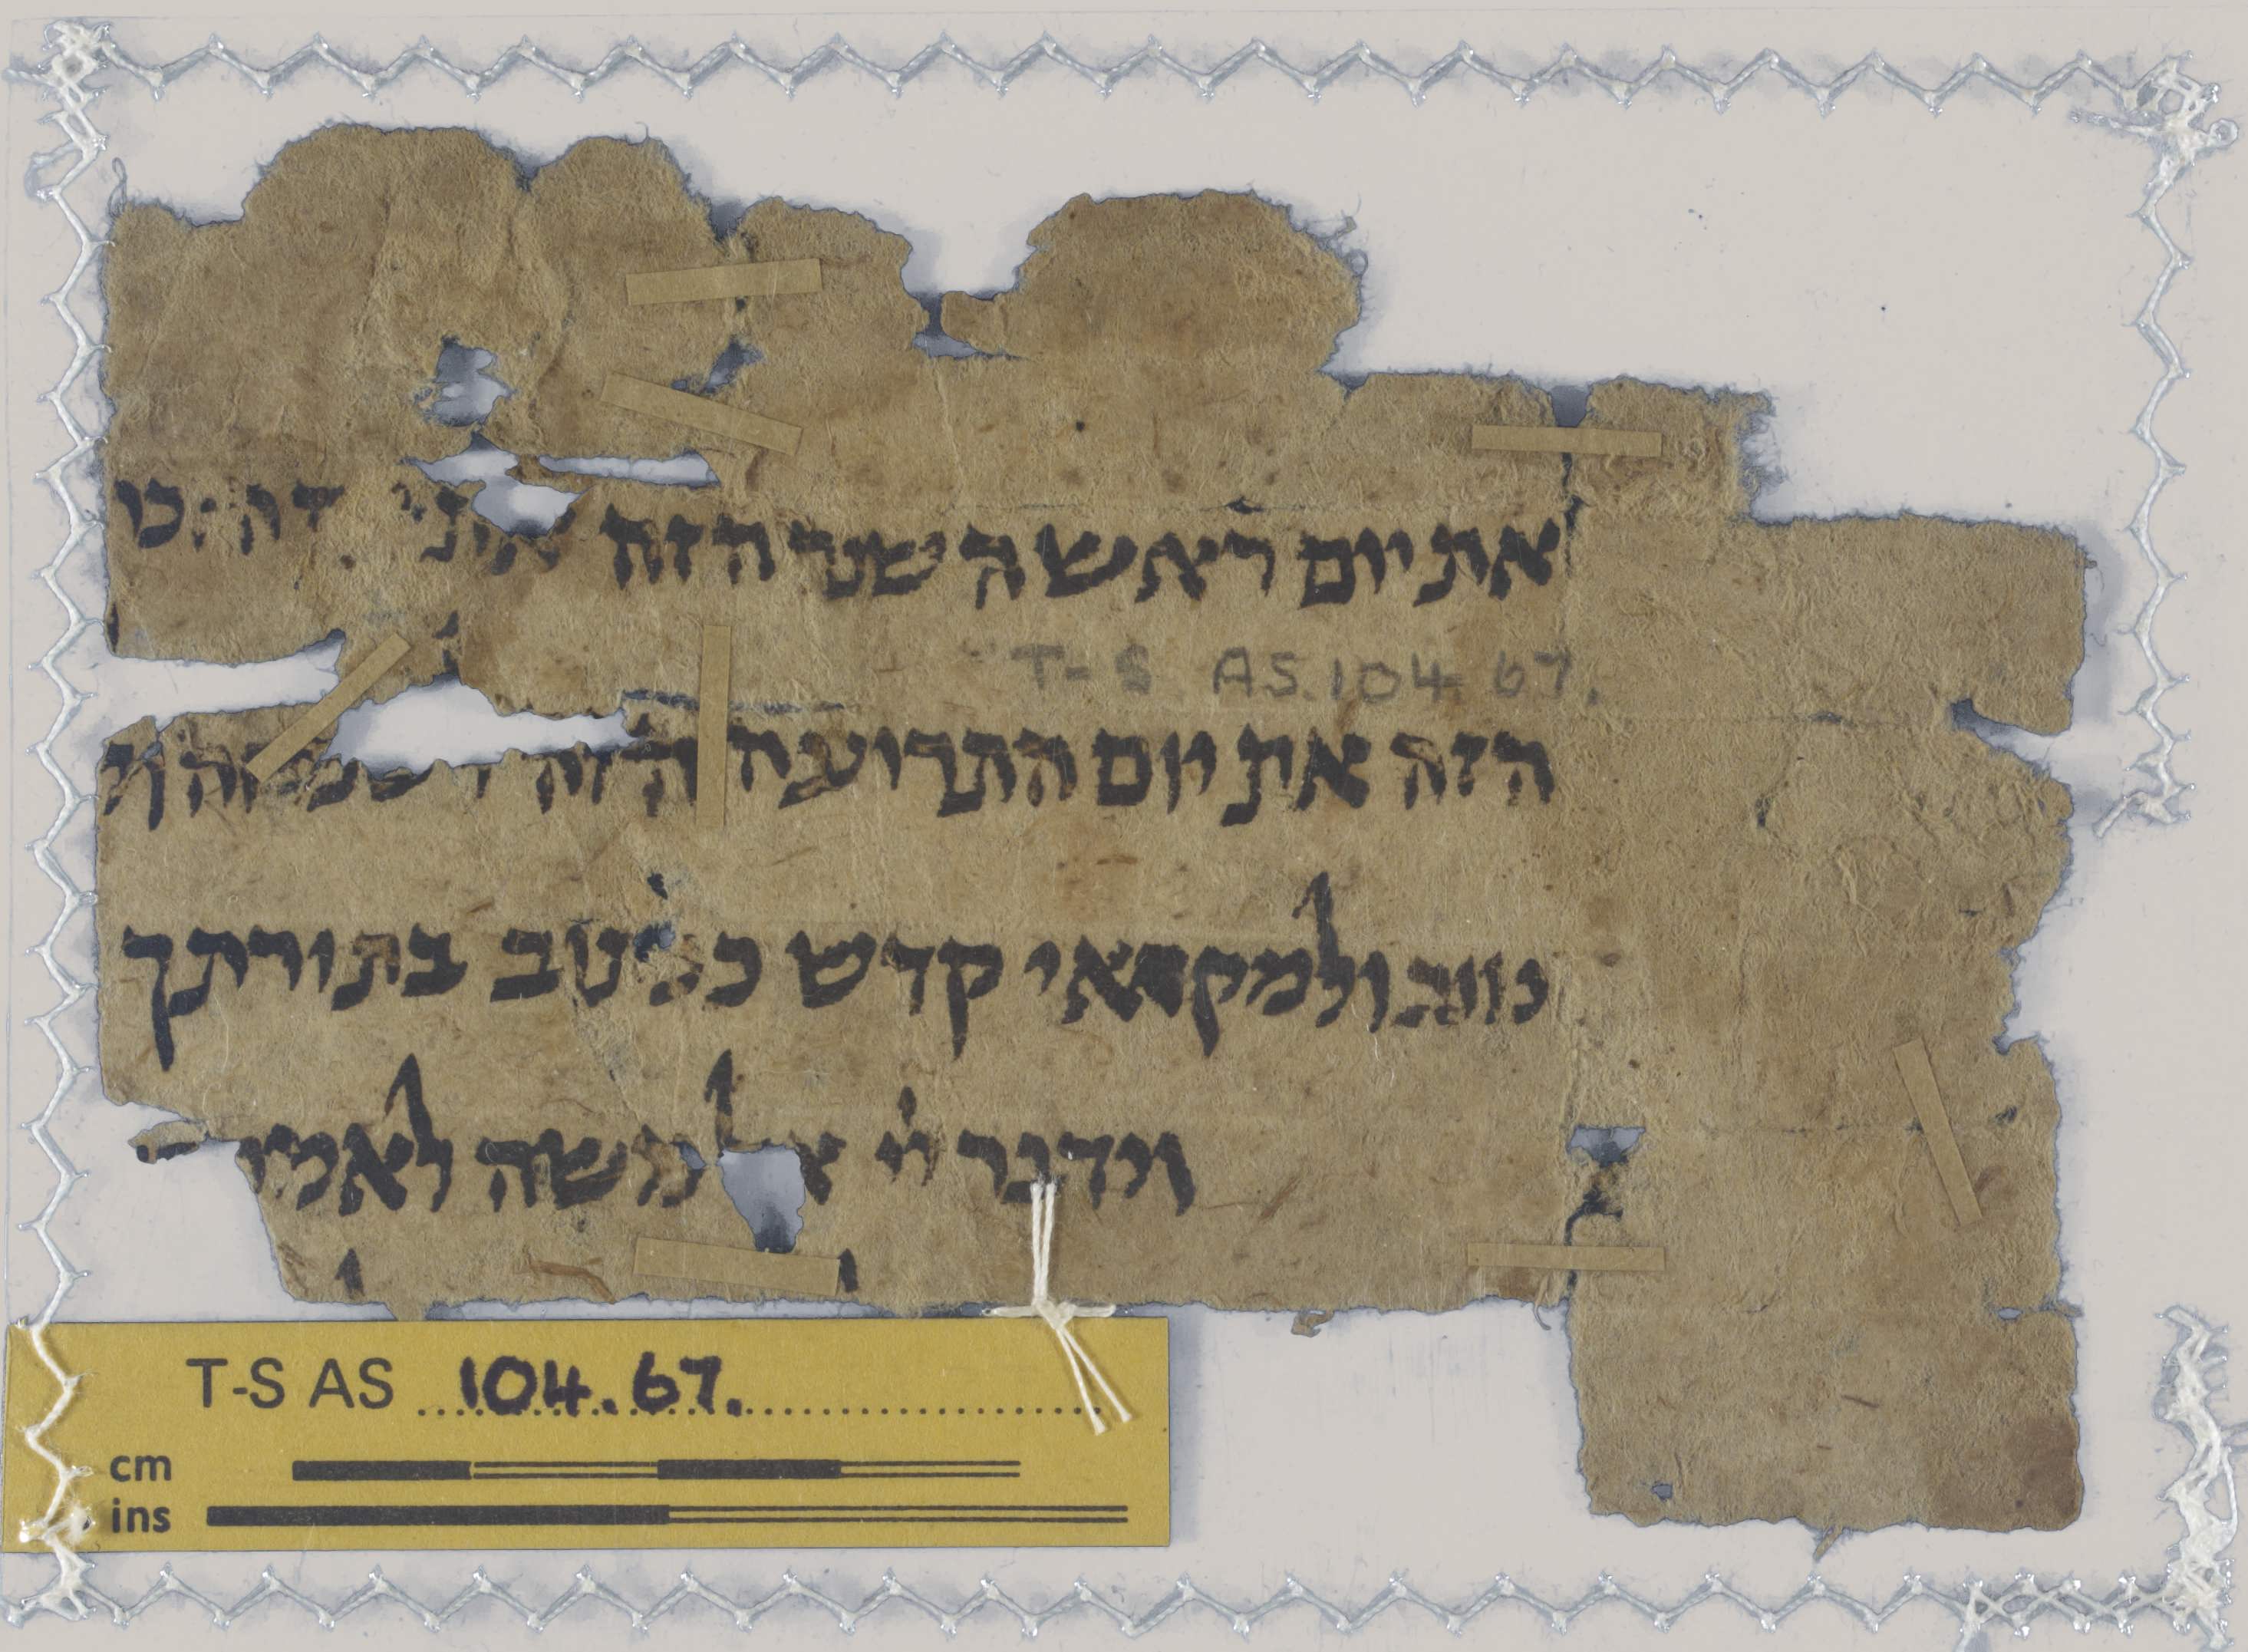 את יום ראש השנה הזה את יום הזכרון
T-S AS.104 67.
הזה את יום התרועה הזה לשמחה ול
טוב ולמקראי קדש ככתוב בתורתך
וידבר יי אל משה לאמר
T-S AS 104.67.
cm
ins